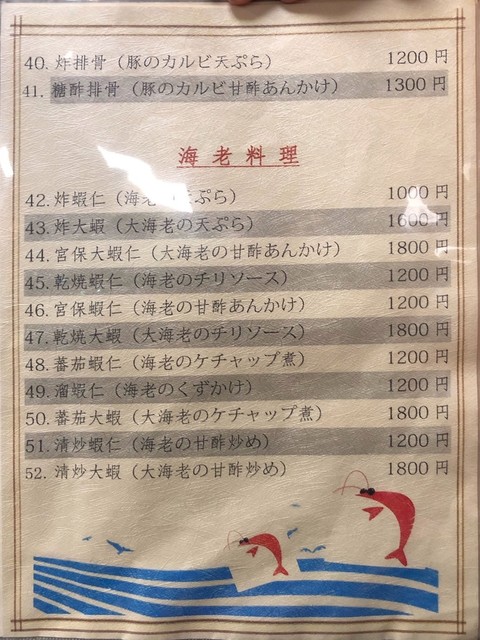 40. 炸排骨（豚のカルビ天ぷら） 1200 円
41. 糖酢排骨（豚のカルビ甘酢あんかけ） 1300 円
海老料理
42. 炸蝦仁（海老の天ぷら） 1000 円
43. 炸大蝦（大海老の天ぷら） 1600 円
44. 宮保大蝦仁（大海老の甘酢あんかけ） 1800 円
45. 乾焼蝦仁（海老のチリソース） 1200 円
46. 宮保蝦仁（海老の甘酢あんかけ） 1200 円
47. 乾焼大蝦（大海老のチリソース） 1800 円
48. 蕃茄蝦仁（海老のケチャップ煮） 1200 円
49. 溜蝦仁（海老のくずかけ） 1200 円
50. 蕃茄大蝦（大海老のケチャップ煮） 1800 円
51. 清炒蝦仁（海老の甘酢炒め） 1200 円
52. 清炒大蝦（大海老の甘酢炒め） 1800 円